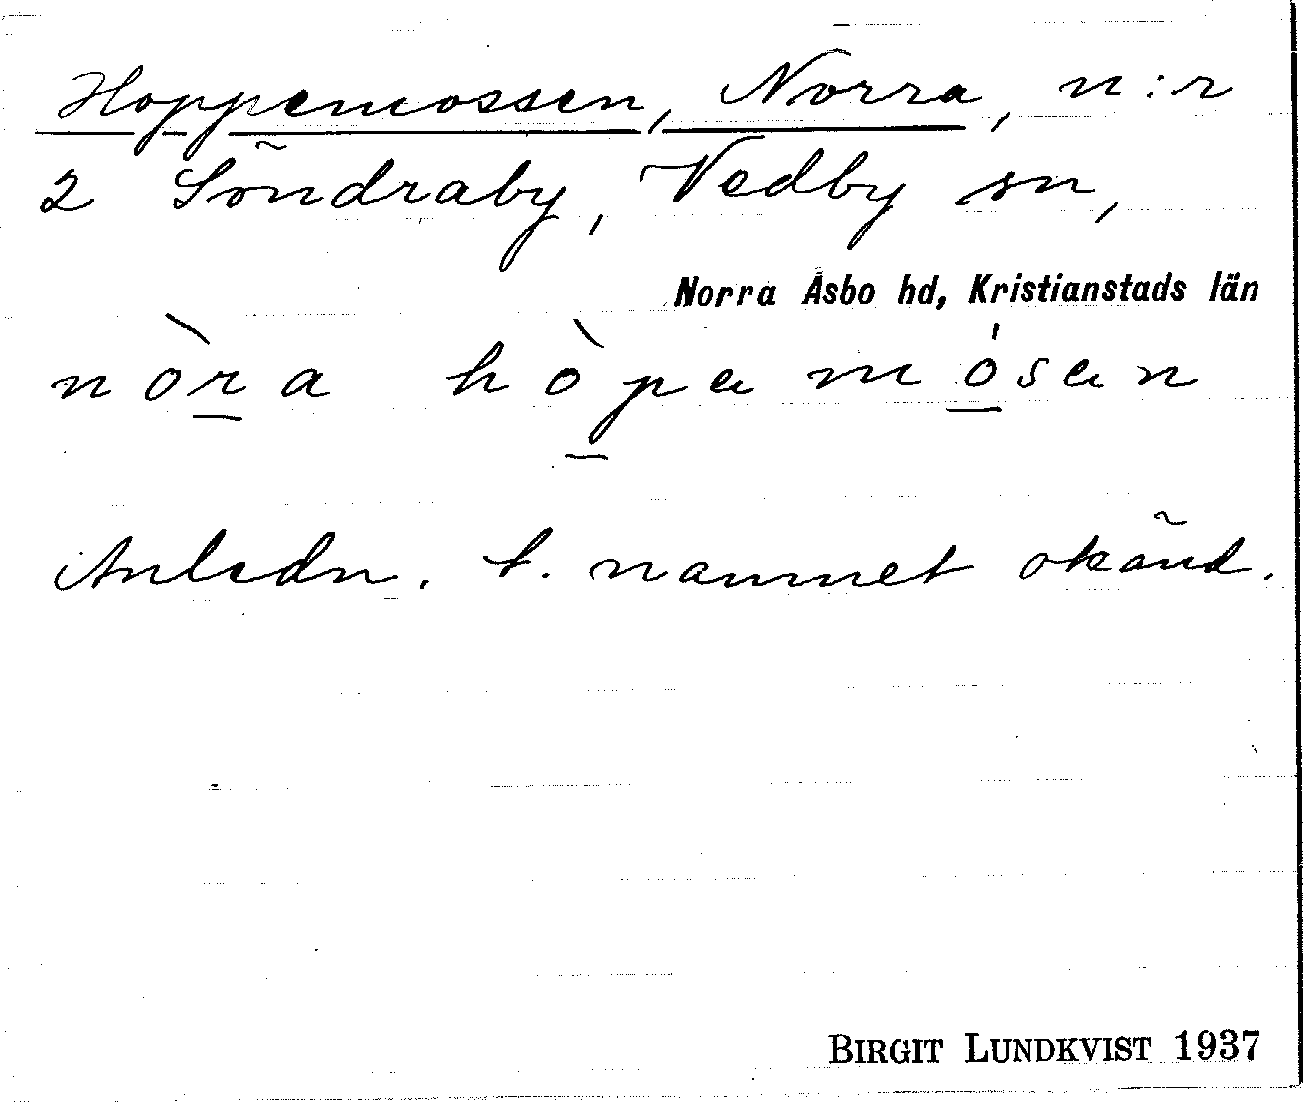 Hoppemossen, Norra, n:r
2 Söndraby, Vedby sn,
Norra Åsbo hd, Kristianstads län
nòr̲a hòp̲a mó̲san
Anledn. t. namnet okänd.
BIRGIT LUNDKVIST 1937